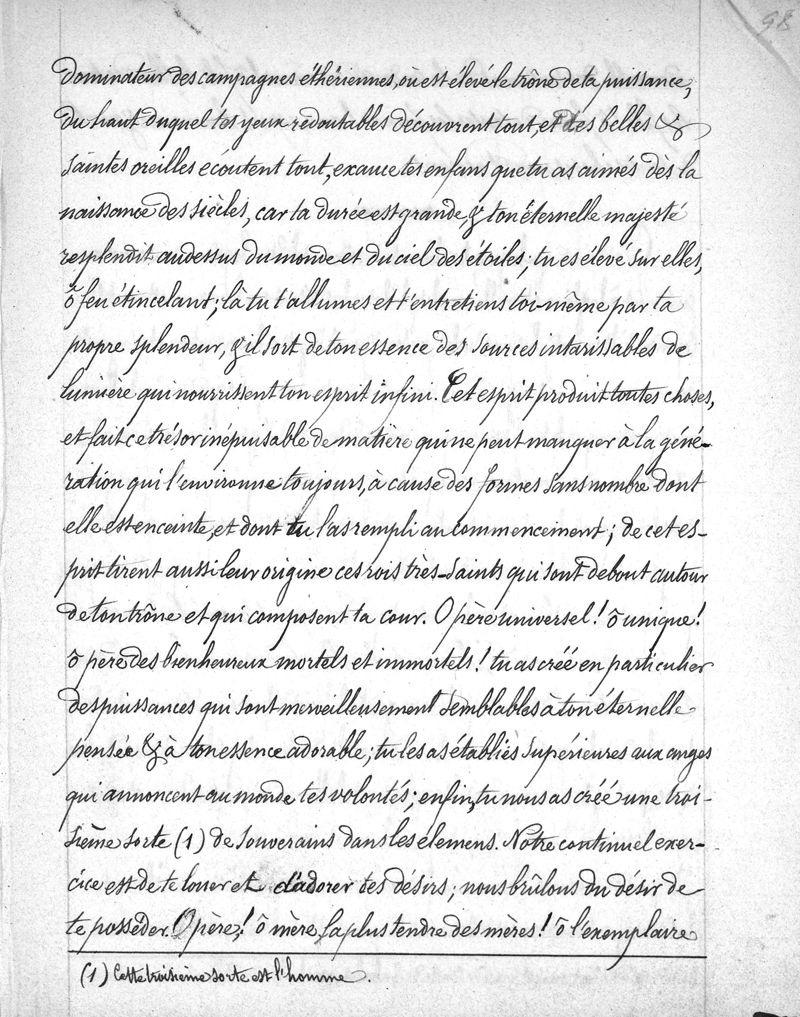 98
dominateur des campagnes éthériennes, où est élevé le trône de ta puissance,
du haut duquel tes yeux redoutables découvrent tout, et tes belles &
saintes oreilles écoutent tout, exauce tes enfans que tu as aimés dès la
naissance des siècles, car ta durée est grande, & ton éternelle majesté
resplendit audessus du monde et du ciel des étoiles; tu es élevé sur elles,
ô feu étincelant; là tu t'allumes et t'entretiens toi-même par ta
propre splendeur, & il sort de ton essence des sources intarissables de
lumière qui nourrissent ton esprit infini. Cet esprit produit toutes choses,
et fait ce trésor inépuisable de matière qui ne peut manquer à la géné-
ration qui l'environne toujours, à cause des formes sans nombre dont
elle est enceinte, et dont tu l'as rempli au commencement; de cet es-
prit tirent aussi leur origine ces rois très-saints qui sont debout autour
de ton trône et qui composent ta cour. O père universel! ô unique!
ô père des bienheureux mortels et immortels! tu as créé en particulier
des puissances qui sont merveilleusement semblables à ton éternelle
pensée & à ton essence adorable; tu les as établies supérieures aux anges
qui annoncent au monde tes volontés; enfin, tu nous as créé une troi-
sième sorte (1) de souverains dans les élemens. Notre continuel exer-
cice est de te louer et d'adorer tes désirs; nous brûlons du désir de
te posséder. O père! ô mère, la plus tendre des mères! ô l'exemplaire
(1) Cette troisième sorte est l'homme.